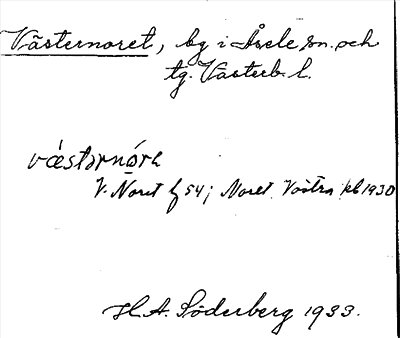 Västernoret, by i Åsele sn. och
tg. Västerb. l.
vǽstərnórɛ
V. Noret 54; Noret Västra kb 1930
H.A. Söderberg 1933.